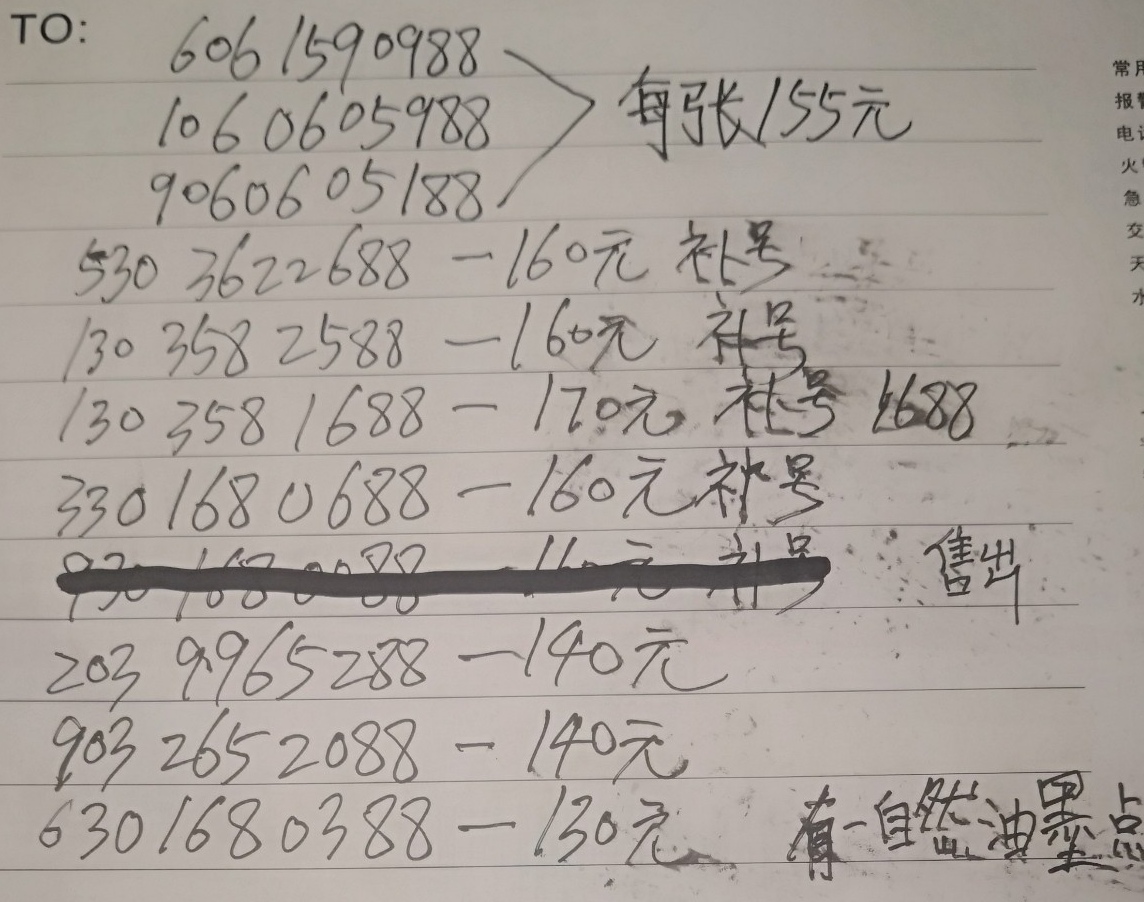 TO:
6061590988
1060605988
9060605188
每张155元
530 3622688 — 160元 补号
130 3582588 — 160元 补号
130 3581688 — 170元 补号 1688
330 1680688 — 160元 补号
930 1680088 — 160元 补号 售出
203 9965288 — 140元
903 2652088 — 140元
630 1680388 — 130元 有一自然油墨点
常用
报警
火
急
交
天
水